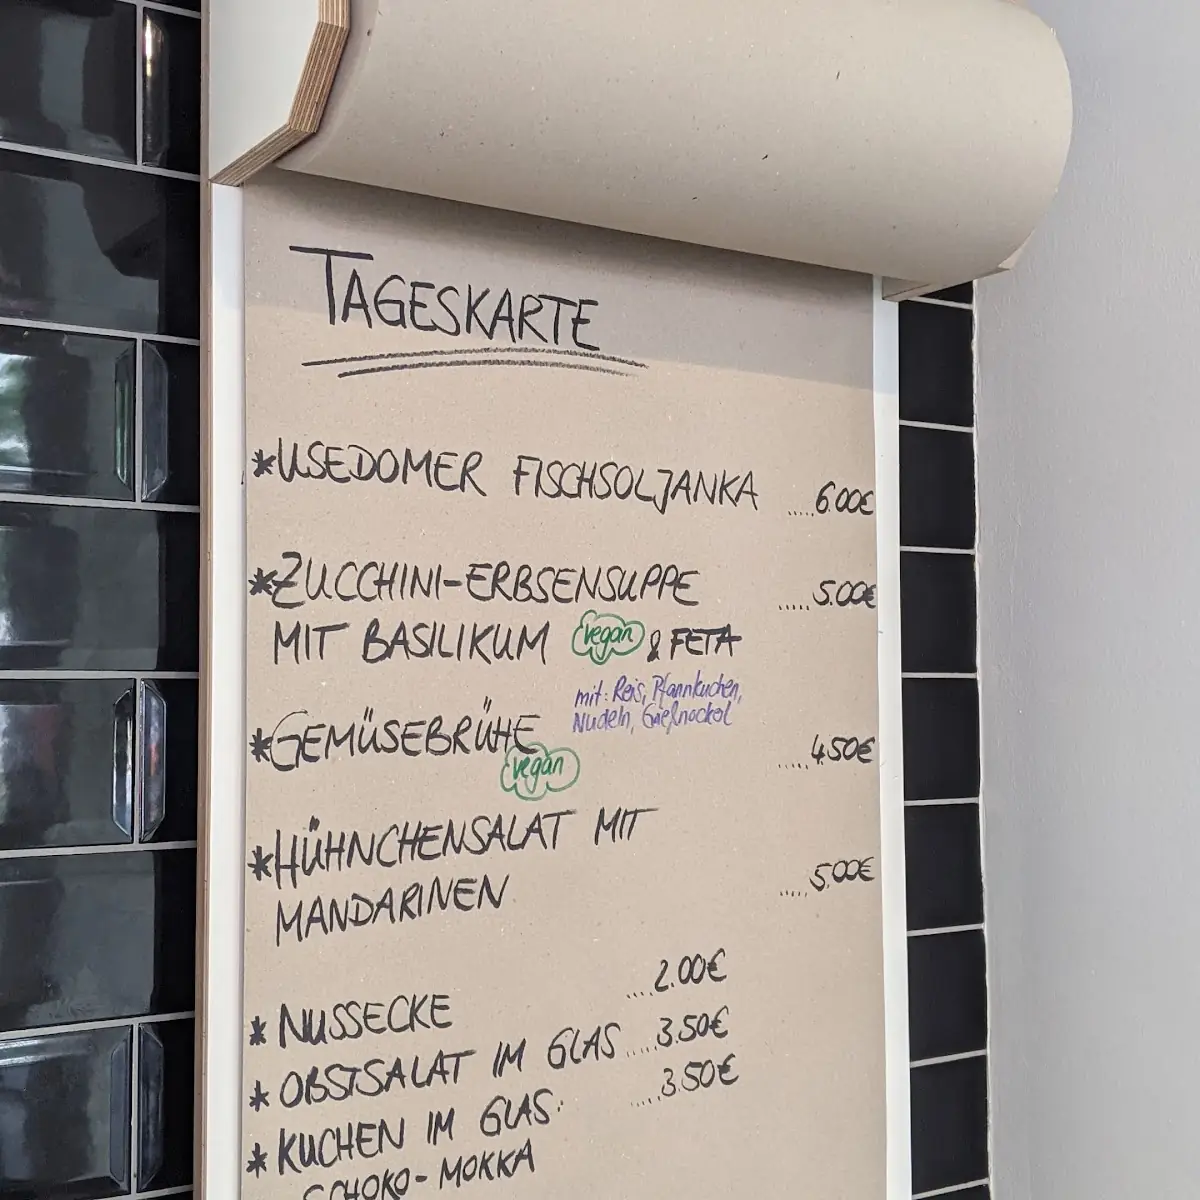 TAGESKARTE
*USEDOMER FISCHSOLJANKA .....6.00€
*ZUCCHINI-ERBSENSUPPE .....5.00€
MIT BASILIKUM vegan & FETA
mit: Reis, Pfannkuchen,
Nudeln, Grießnockerl
*GEMÜSEBRÜHE .....4.50€
vegan
*HÜHNCHENSALAT MIT
MANDARINEN .....5.00€
*NUSSECKE ....2.00€
*OBSTSALAT IM GLAS ....3.50€
*KUCHEN IM GLAS: ....3.50€
SCHOKO-MOKKA